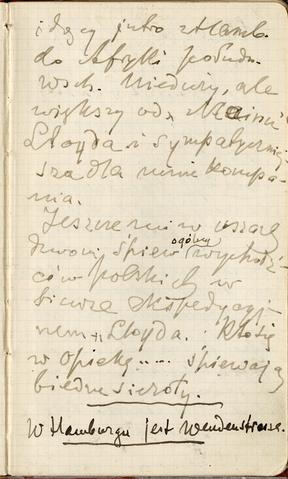 idący jutro z Hamb.
do Afryki połudn.
wsch. Nieduży, ale
większy od
Lloyda i sympatyczniej-
sza dla mnie kompa-
nia.
Jeszcze mi w uszach
dzwoni śpiew ogólny wychodź-
ców polskich w
biurze ekspedycyj-
nem Lloyda. Kto się
w opiekę.... śpiewają
biedne sieroty.
W Hamburgu jest Wendenstrasse.